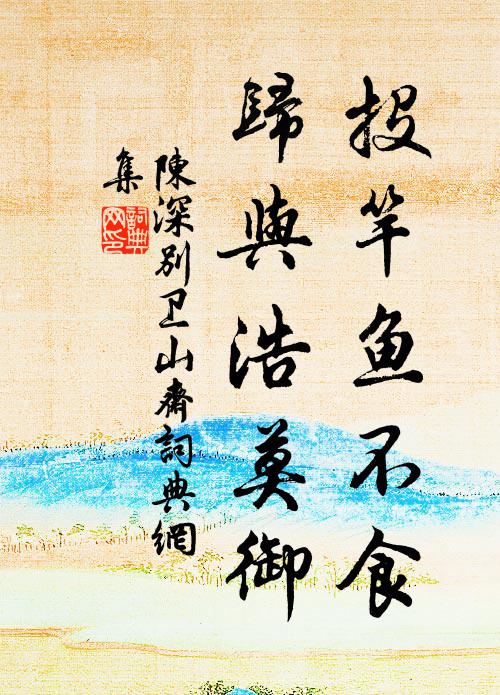 投竿魚不食
歸與浩莫御
陳深別卫山齋詞典網
集
詞典
网印